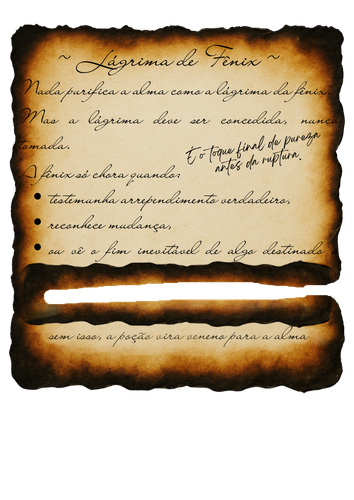 ~ Lágrima de Fênix ~
Nada purifica a alma como a lágrima da fênix.
Mas a lágrima deve ser concedida, nunca
tomada.
É o toque final de pureza
antes da ruptura.
A fênix só chora quando:
• testemunha arrependimento verdadeiro,
• reconhece mudança,
• ou vê o fim inevitável de algo destinado
sem isso, a poção vira veneno para a alma